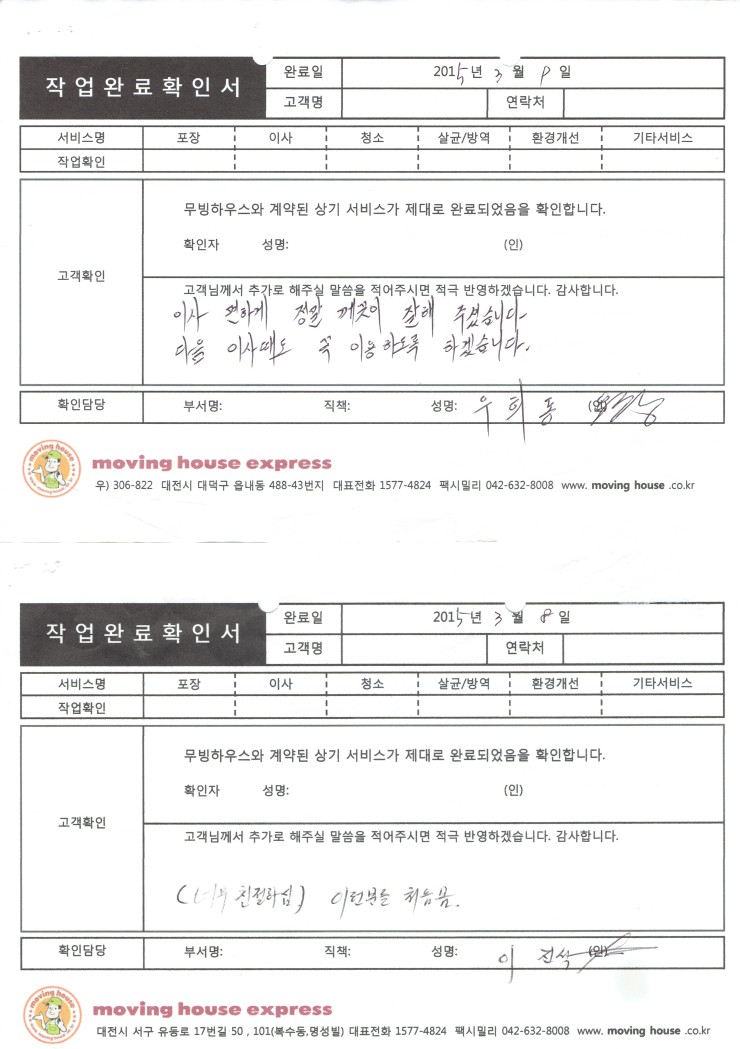 작업완료확인서
완료일 2015년 3월 8일
고객명 연락처
서비스명 포장 이사 청소 살균/방역 환경개선 기타서비스
작업확인
고객확인
무빙하우스와 계약된 상기 서비스가 제대로 완료되었음을 확인합니다.
확인자 성명: (인)
고객님께서 추가로 해주실 말씀을 적어주시면 적극 반영하겠습니다. 감사합니다.
이사 편하게 정말 깨끗이 잘해 주셨습니다.
다음 이사때도 꼭 이용하도록 하겠습니다.
확인담당 부서명: 직책: 성명: 우희동 (인)
moving house
moving house express
우) 306-822 대전시 대덕구 읍내동 488-43번지 대표전화 1577-4824 팩시밀리 042-632-8008 www. moving house .co.kr
작업완료확인서
완료일 2015년 3월 8일
고객명 연락처
서비스명 포장 이사 청소 살균/방역 환경개선 기타서비스
작업확인
고객확인
무빙하우스와 계약된 상기 서비스가 제대로 완료되었음을 확인합니다.
확인자 성명: (인)
고객님께서 추가로 해주실 말씀을 적어주시면 적극 반영하겠습니다. 감사합니다.
(너무 친절하심) 이런분들 처음봄.
확인담당 부서명: 직책: 성명: 이진식 (인)
moving house
moving house express
대전시 서구 유등로 17번길 50 , 101(복수동,명성빌) 대표전화 1577-4824 팩시밀리 042-632-8008 www. moving house .co.kr